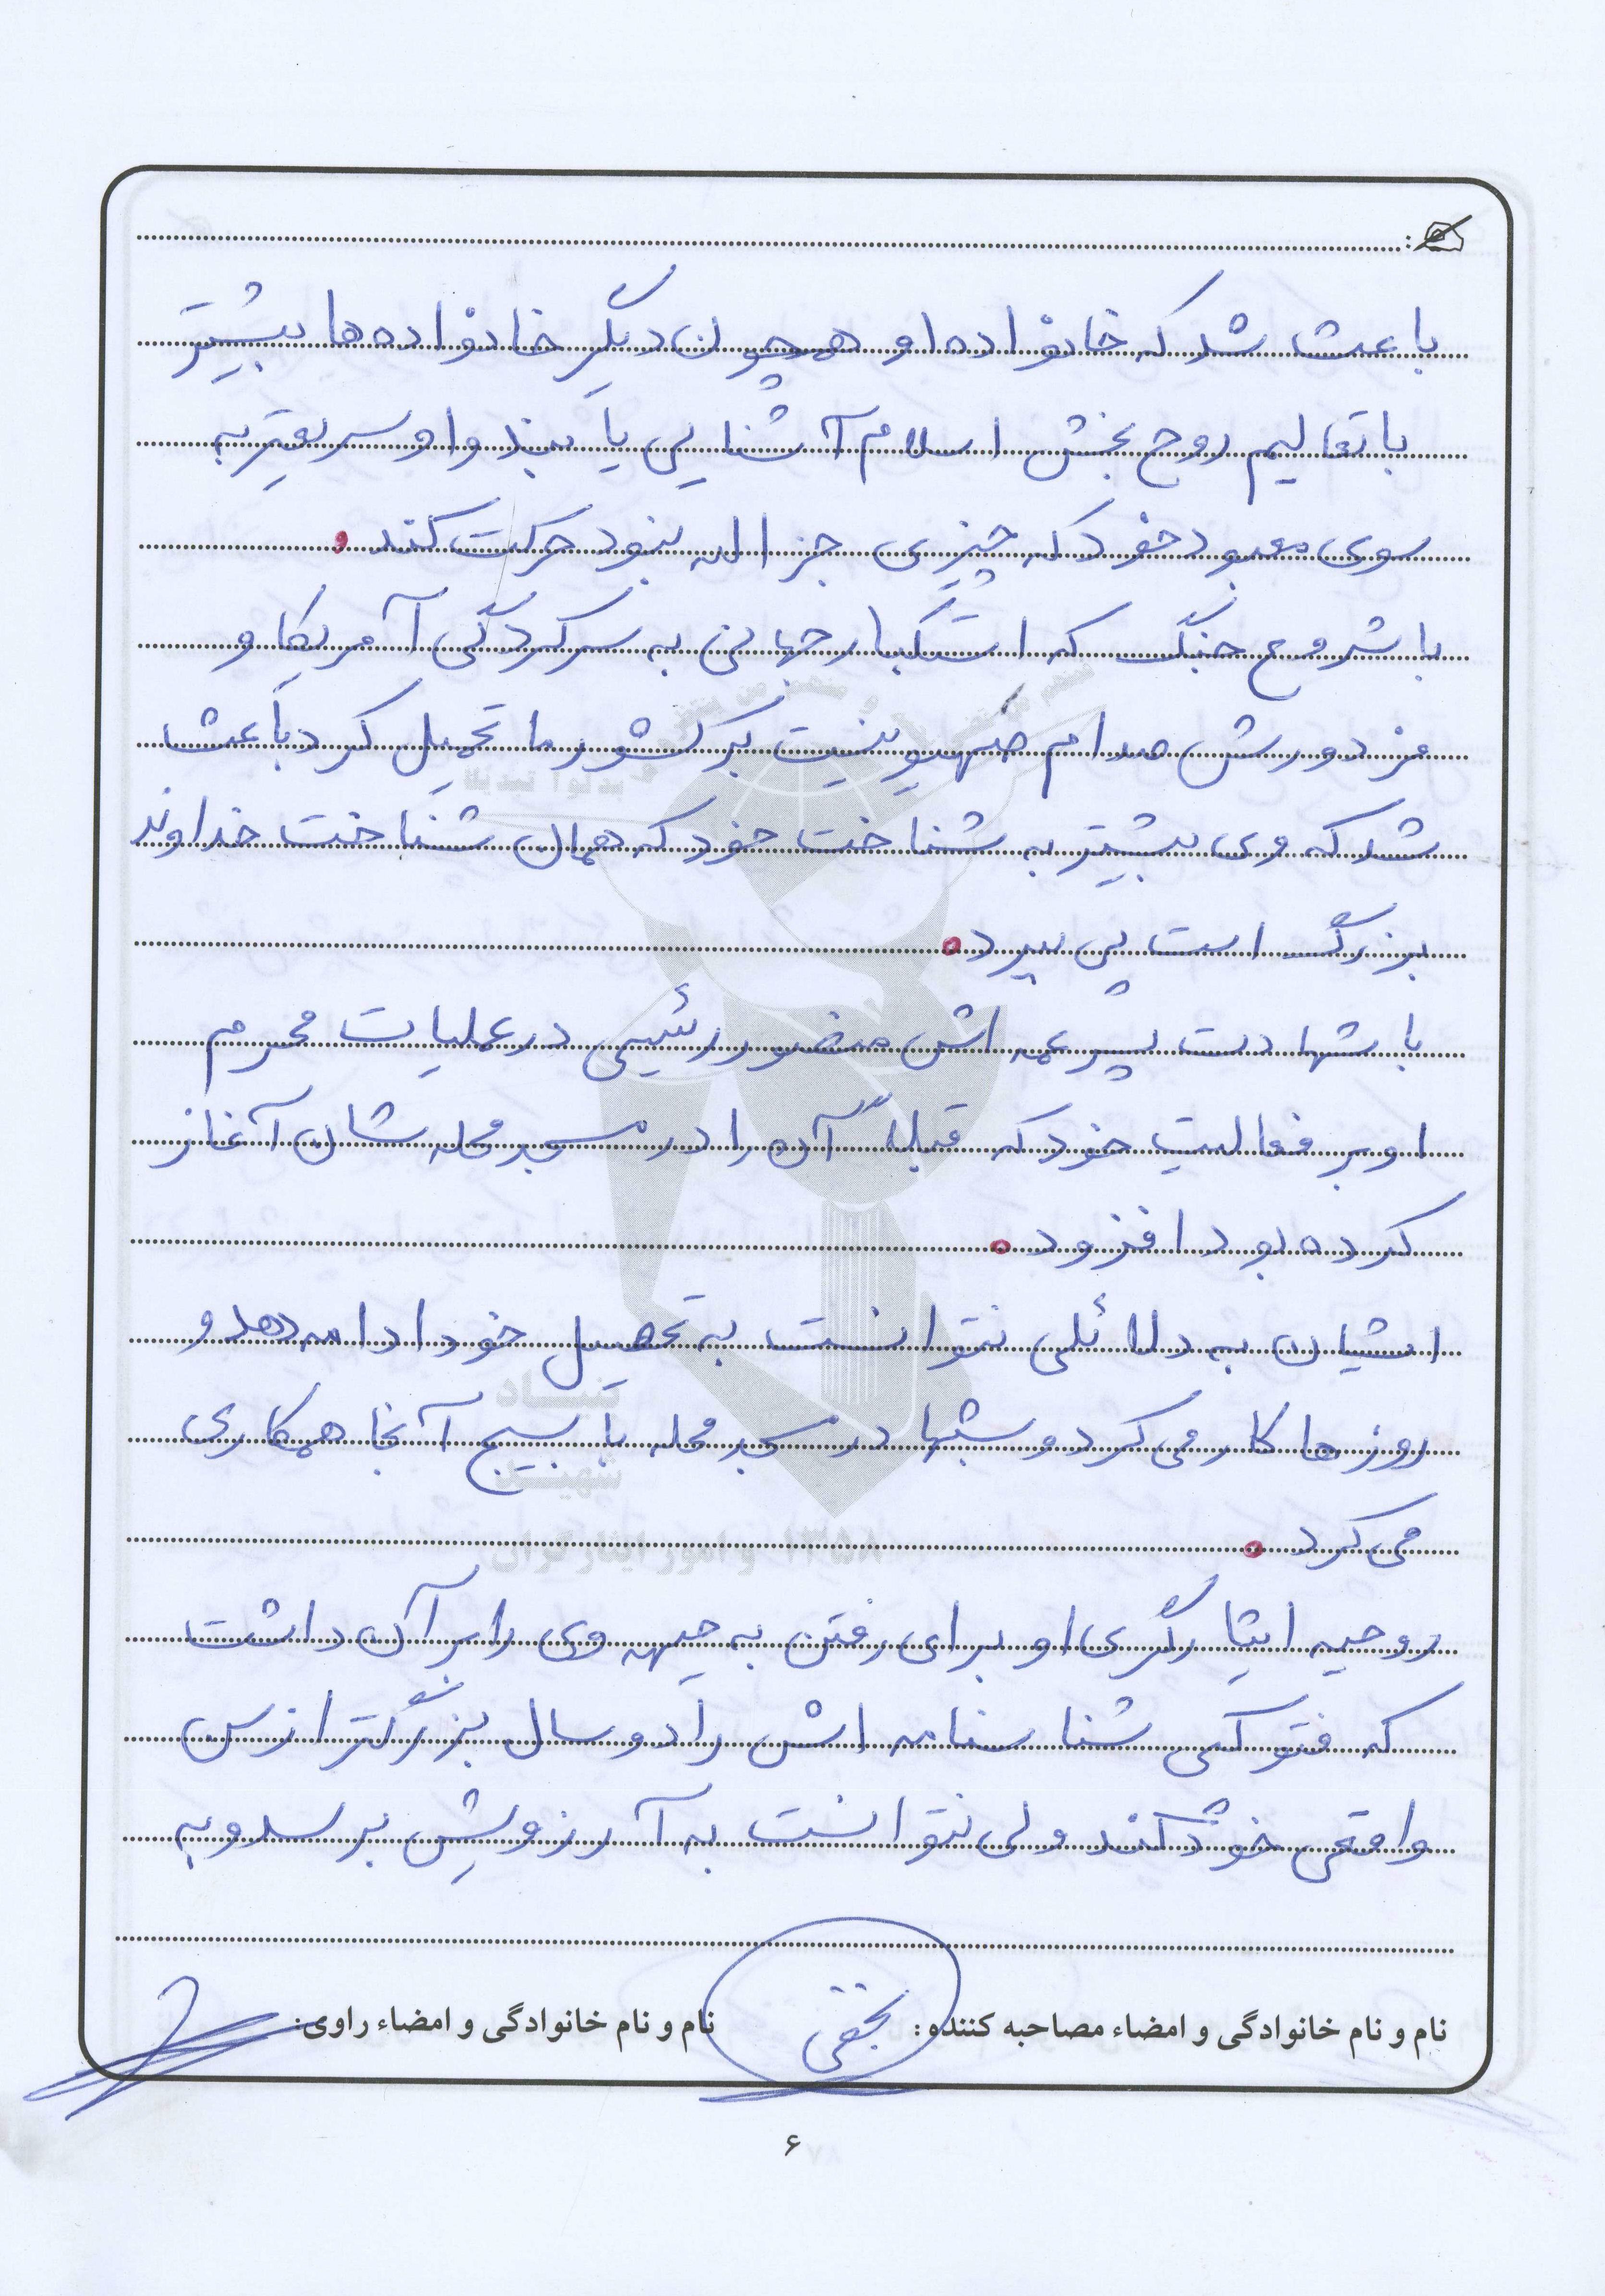 باعث شد که خانواده او همچون دیگر خانواده ها بیشتر
با تعالیم روح بخش اسلام آشنایی یابند و او سریعتر به
سوی معبود خود که چیزی جز الله نبود حرکت کند.
با شروع جنگ که استکبار جهانی به سرکردگی آمریکا و
مزدورش صدام صهیونیست بر کشور ما تحمیل کرد باعث
شد که وی بیشتر به شناخت خود که همان شناخت خداوند
بزرگ است پی ببرد.
با شهادت پسر عمه اش منصور رئیسی در عملیات محرم
او بر فعالیت خود که قبلاً آن را در مسجد محله شان آغاز
کرده بود افزود.
ایشان به دلائلی نتوانست به تحصیل خود ادامه دهد و
روزها کار می کرد و شبها در مسجد محله با بسیج آنجا همکاری
می کرد.
روحیه ایثارگری او برای رفتن به جبهه وی را بر آن داشت
که فتوکپی شناسنامه اش را دو سال بزرگتر از سن
واقعی خود کند ولی نتوانست به آرزویش برسد و به
نام و نام خانوادگی و امضاء مصاحبه کننده: نام و نام خانوادگی و امضاء راوی:
۶
بنیاد
شهید
و امور ایثارگران ۱۳۵۸